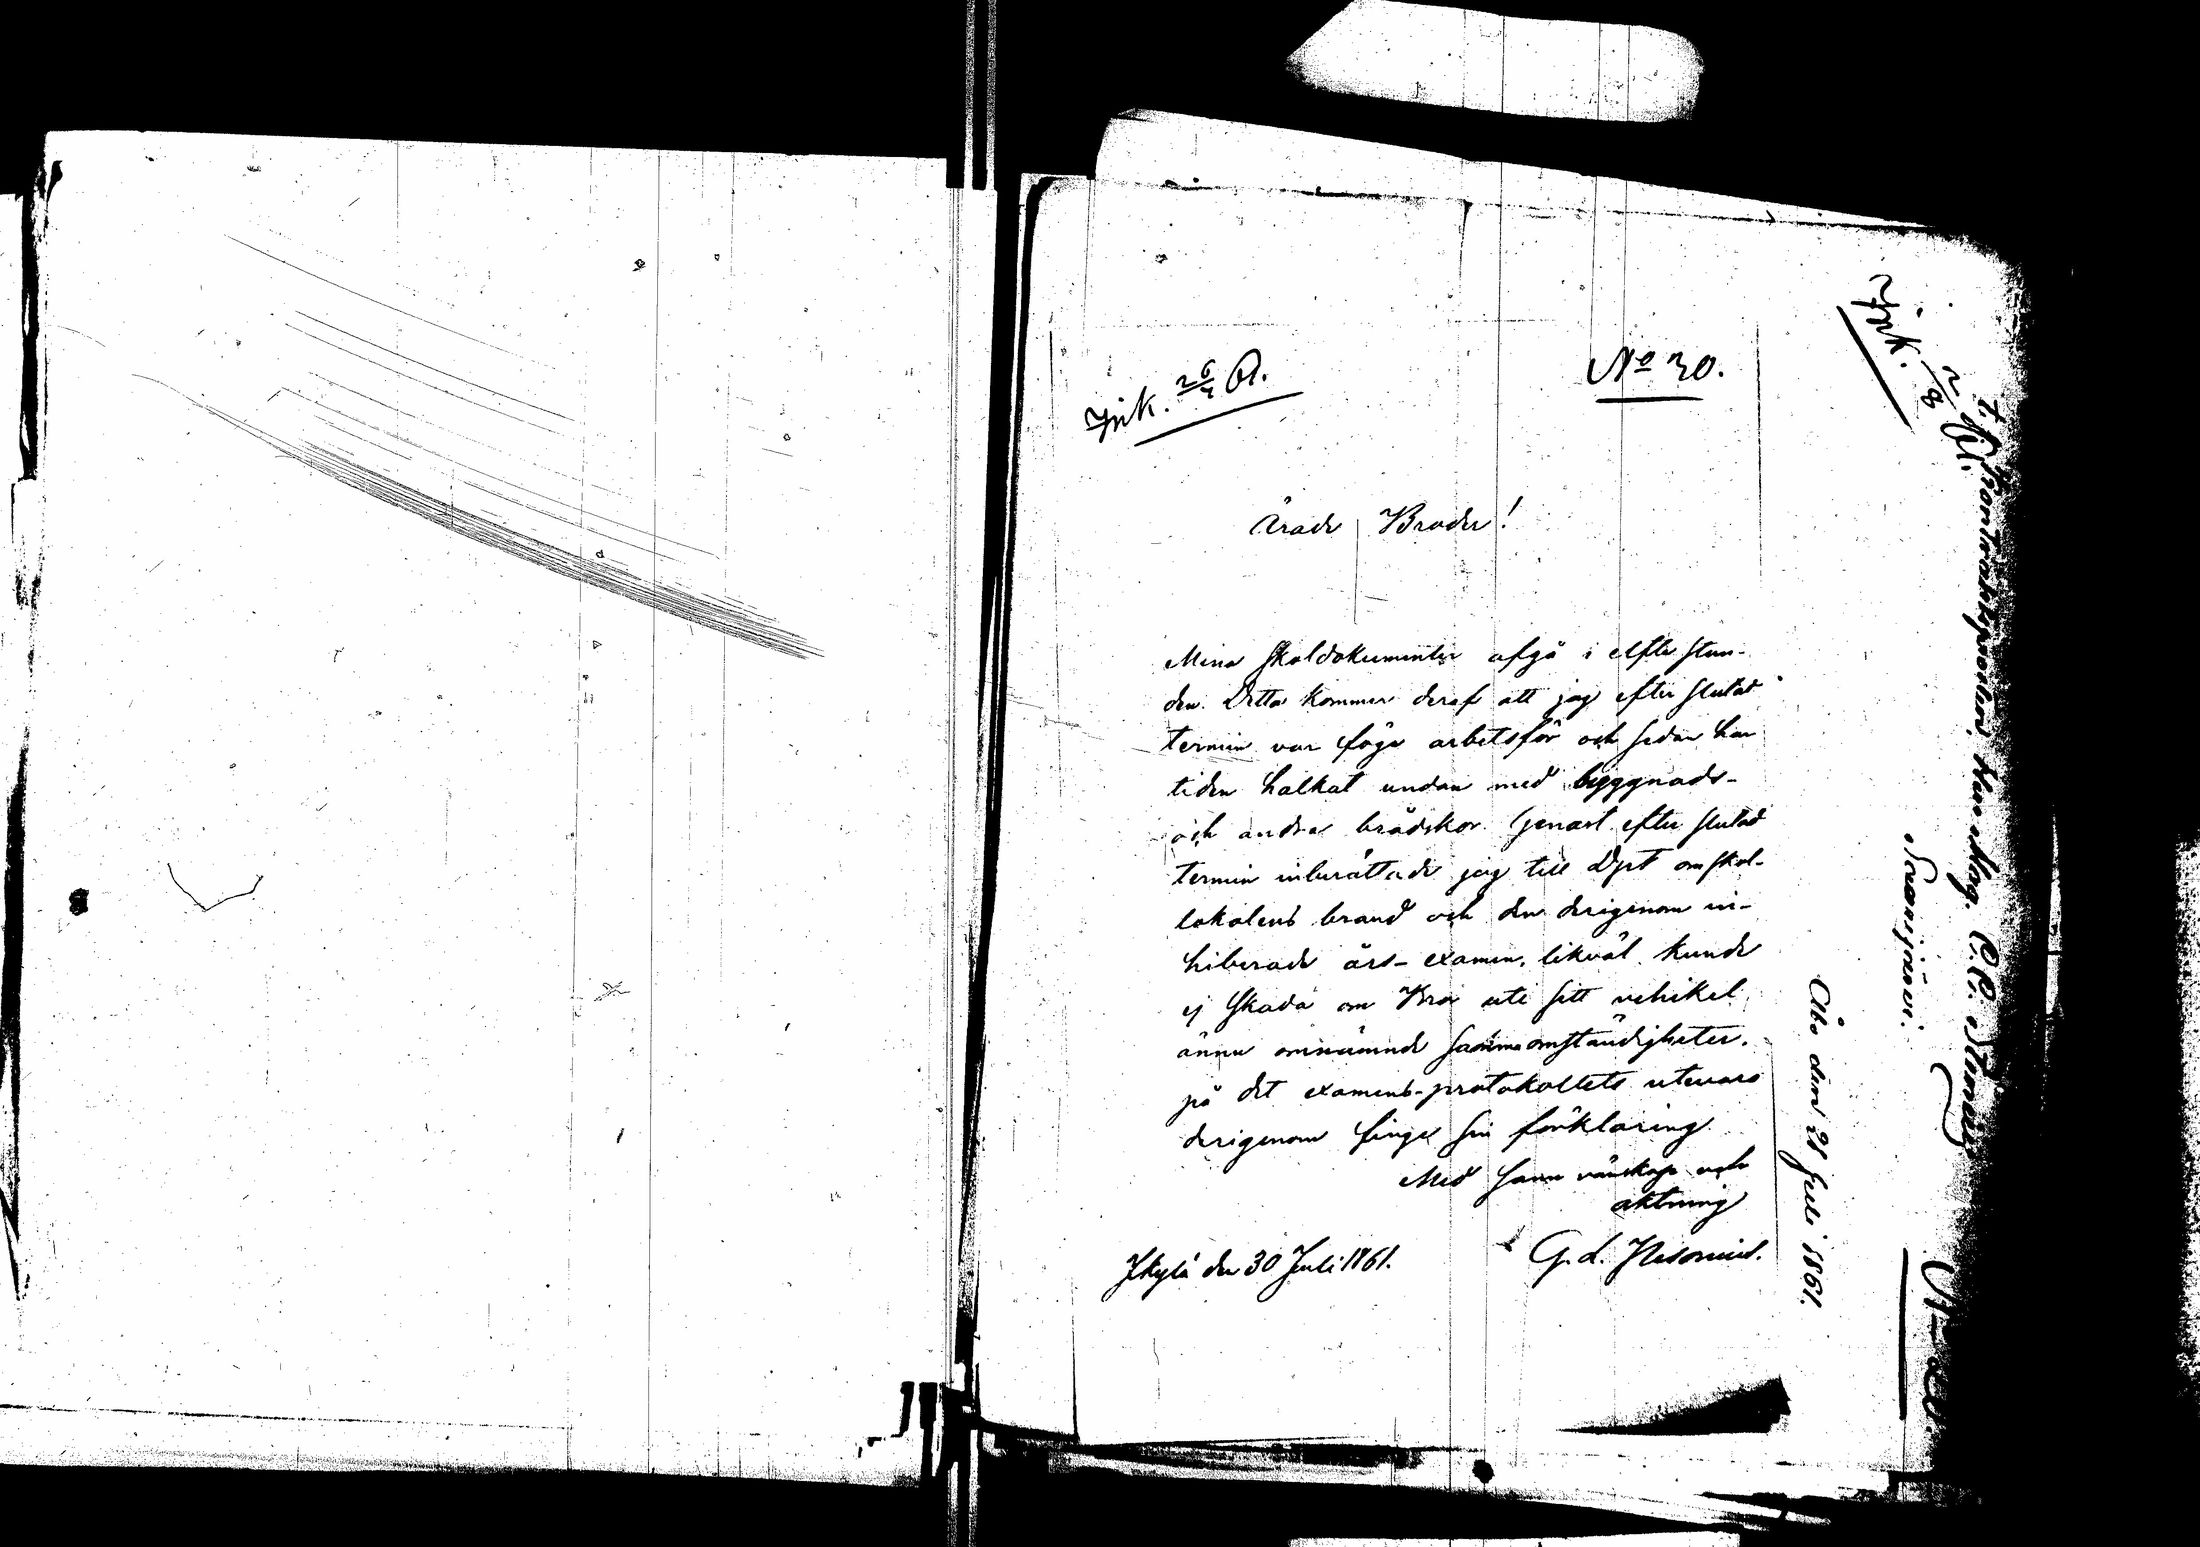 Ink. 26/7 61.
No 30.
Ärade Broder!
Mina Skoldokumenter afgå i elfte stun-
den. Detta kommer deraf att jag efter slutad
termin var föga arbetsför och sedan har
tiden halkat undan med byggnads-
och andra brådskor. Genast efter slutad
termin inberättade jag till Dprt om skol-
lokalens brand och den derigenom in-
hiberade års-examen, likväl kunde
ej skada om Bror uti sitt vehikel
ännu omnämnde samma omständigheter,
på det examens-protokollets utevaro
derigenom finge sin förklaring.
Med sann vänskap och
aktning
G. L.
den 30 Juli 1861.
Ink. 2/8 61.
t. f. Kontraktsprosten, Herr Mag. C. C.
Åbo den 28 Juli 1861.